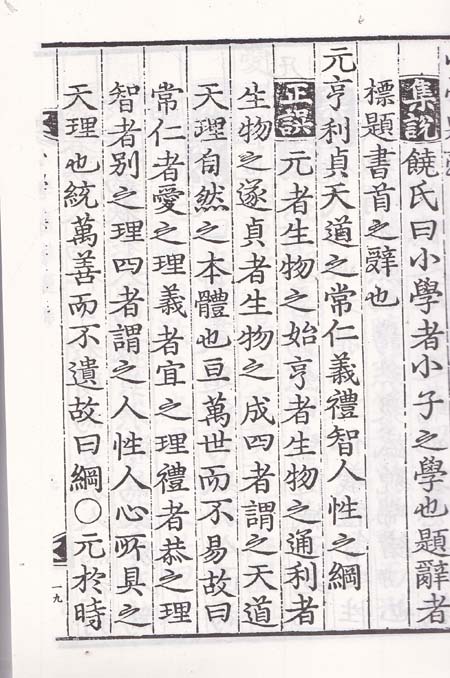 集說饒氏曰小學者小子之學也題辭者
標題書首之辭也
元亨利貞天道之常仁義禮智人性之綱
正誤元者生物之始亨者生物之通利者
生物之遂貞者生物之成四者謂之天道
天理自然之本體也亘萬世而不易故曰
常仁者愛之理義者宜之理禮者恭之理
智者別之理四者謂之人性人心所具之
天理也統萬善而不遺故曰綱○元於時
一九